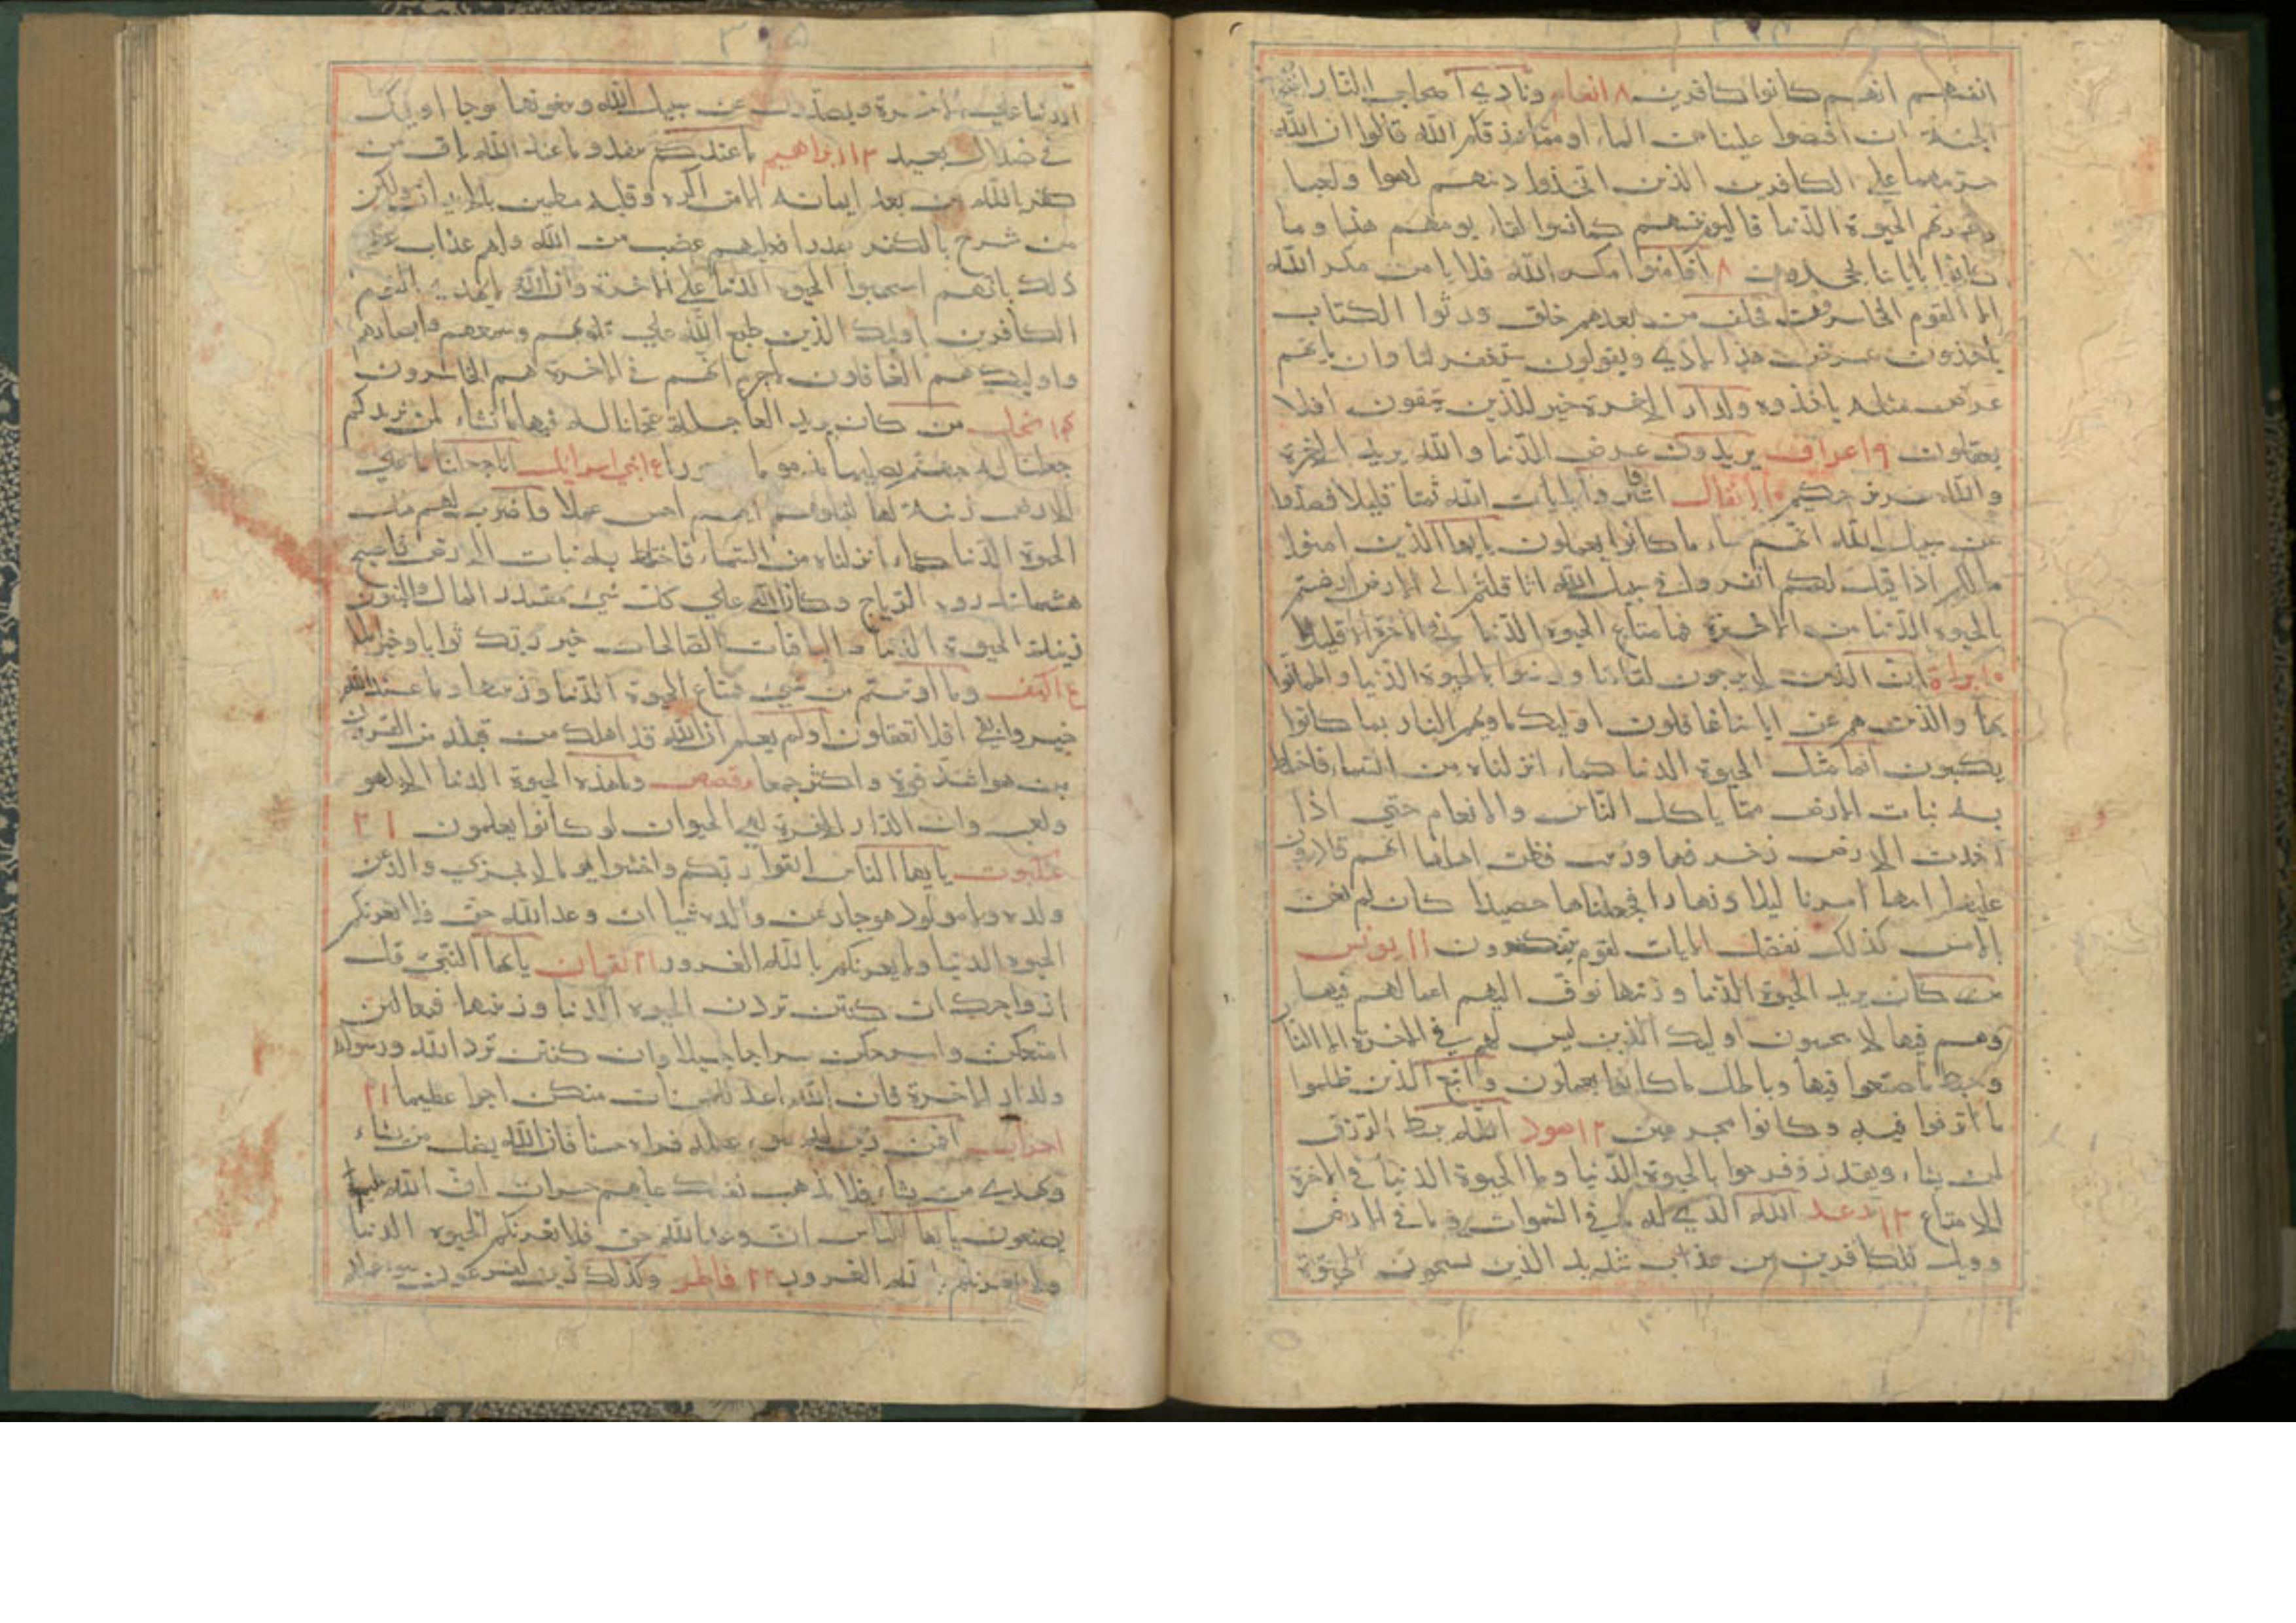 انفسهم انهم كانوا كافرين ٨ انعام ونادي اصحاب النار اصحاب
الجنة ان افيضوا علينا من الماء او مما رزقكم الله قالوا ان الله
حرمهما علي الكافرين الذين اتخذوا دينهم لهوا ولعبا
وغرتهم الحيوة الدنيا فاليوم ننسهم كما نسوا لقاء يومهم هذا وما
كانوا باياتنا يجحدون ٨ افامنوا مكر الله فلا يامن مكر الله
الا القوم الخاسرون فخلف من بعدهم خلف ورثوا الكتاب
ياخذون عرض هذا الادني ويقولون سيغفر لنا وان ياتهم
عرض مثله ياخذوه ولدار الاخرة خير للذين يتقون افلا
يعقلون ٩ اعراف يريدون عرض الدنيا والله يريد الاخرة
والله عزيز حكيم ١٠ انفال اشتروا بايات الله ثمنا قليلا فصدوا
عن سبيل الله انهم ساء ما كانوا يعملون يا يها الذين امنوا
مالكم اذا قيل لكم انفروا في سبيل الله اثاقلتم الي الارض ارضيتم
بالحيوة الدنيا من الاخرة فما متاع الحيوة الدنيا في الاخرة الا قليل
١٠ براة ان الذين لا يرجون لقاءنا ورضوا بالحيوة الدنيا واطمانوا
بها والذين هم عن اياتنا غافلون اوليك ماويهم النار بما كانوا
يكسبون انما مثل الحيوة الدنيا كماء انزلناه من السماء فاختلط
به نبات الارض مما ياكل الناس والانعام حتي اذا
اخذت الارض زخرفها وزينت وظن اهلها انهم قادرون
عليها اتيها امرنا ليلا ونهارا فجعلناها حصيدا كان لم تغن
بالامس كذلك نفصل الايات لقوم يتفكرون ١١ يونس
من كان يريد الحيوة الدنيا وزينتها نوف اليهم اعمالهم فيها
وهم فيها لا يبخسون اوليك الذين ليس لهم في الاخرة الا النار
وحبط ما صنعوا فيها وباطل ما كانوا يعملون واتبع الذين ظلموا
ما اترفوا فيه وكانوا مجرمين ١٢ هود الله يبسط الرزق
لمن يشاء ويقدر وفرحوا بالحيوة الدنيا وما الحيوة الدنيا في الاخرة
الا متاع ١٣ رعد الله الذي له ما في السموات وما في الارض
وويل للكافرين من عذاب شديد الذين يستحبون الحيوة
٣٠٥
الدنيا علي الاخرة ويصدون عن سبيل الله ويبغونها عوجا اوليك
في ضلال بعيد ١٣ ابراهيم ما عندكم ينفد وما عند الله باق من
كفر بالله من بعد ايمانه الا من اكره وقلبه مطمين بالايمان ولكن
من شرح بالكفر صدرا فعليهم غضب من الله ولهم عذاب عظيم
ذلك بانهم استحبوا الحيوة الدنيا علي الاخرة وان الله لا يهدي القوم
الكافرين اوليك الذين طبع الله علي قلوبهم وسمعهم وابصارهم
واوليك هم الغافلون لاجرم انهم في الاخرة هم الخاسرون
١٤ نحل من كان يريد العاجلة عجلنا له فيها ما نشاء لمن نريد ثم
جعلنا له جهنم يصليها مذموما مدحورا ١٤ بني اسرائيل انا جعلنا ما علي
الارض زينة لها لنبلوهم ايهم احسن عملا واضرب لهم مثل
الحيوة الدنيا كماء انزلناه من السماء فاختلط به نبات الارض فاصبح
هشيما تذروه الرياح وكان الله علي كل شيء مقتدرا المال والبنون
زينة الحيوة الدنيا والباقيات الصالحات خير عند ربك ثوابا وخير املا
١٤ الكهف وما اوتيتم من شيء فمتاع الحيوة الدنيا وزينتها وما عند الله
خير وابقي افلا تعقلون اولم يعلم ان الله قد اهلك من قبله من القرون
من هو اشد قوة واكثر جمعا قصص وما هذه الحيوة الدنيا الا لهو
ولعب وان الدار الاخرة لهي الحيوان لو كانوا يعلمون ٢١
عنكبوت يا يها الناس اتقوا ربكم واخشوا يوما لا يجزي والد عن
ولده ولا مولود هو جاز عن والده شيا ان وعد الله حق فلا تغرنكم
الحيوة الدنيا ولا يغرنكم بالله الغرور ٢١ لقمان يا يها النبي قل
ازواجك ان كنتن تردن الحيوة الدنيا وزينتها فتعالين
امتعكن واسرحكن سراحا جميلا وان كنتن تردن الله ورسوله
ولدار الاخرة فان الله اعد للمحسنات منكن اجرا عظيما ٢١
احزاب افمن زين له سوء عمله فراه حسنا فان الله يضل من يشاء
ويهدي من يشاء فلا تذهب نفسك عليهم حسرات ان الله عليم بما
يصنعون يا يها الناس ان وعد الله حق فلا تغرنكم الحيوة الدنيا
ولا يغرنكم بالله الغرور ٢٢ فاطر وكذلك زين لفرعون سوء عمله